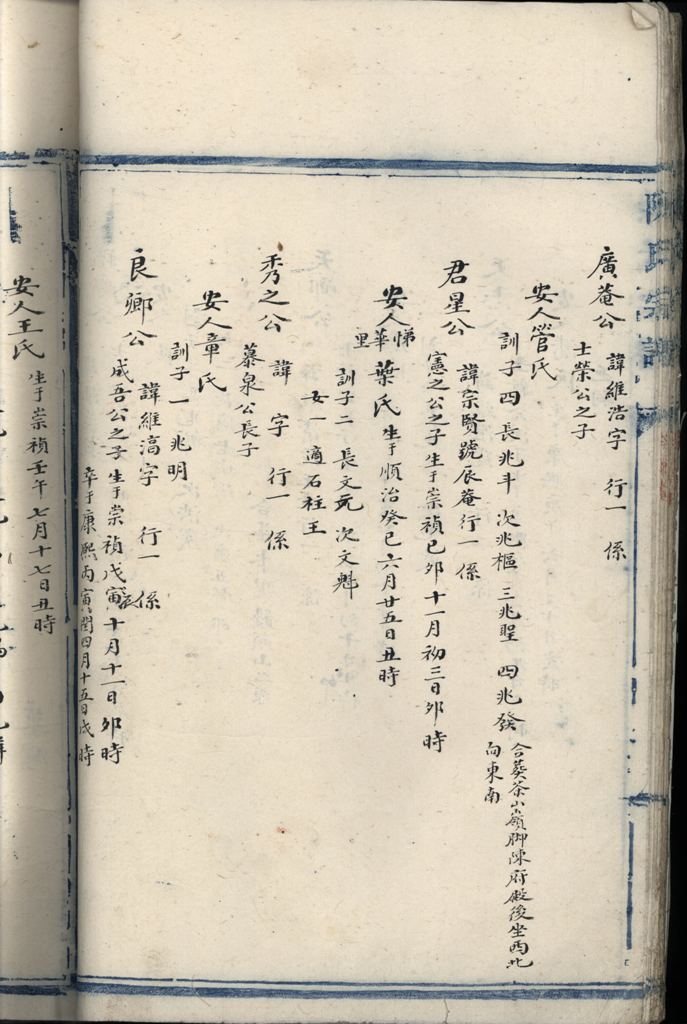 陳氏宗譜
廣菴公 諱維浩字 行一 係
士榮公之子
安人管氏
訓子四 長兆斗 次兆樞 三兆聖 四兆發
合葬茶山嶺脚陳府殿後坐西北
向東南
君星公 諱宗賢號辰菴行一 係
憲之公之子生于崇禎己卯十一月初三日卯時
安人悌華里葉氏生于順治癸巳六月廿五日丑時
訓子二 長文元 次文魁
女一 適石柱王
秀之公 諱 字 行一 係
慕泉公長子
安人章氏
訓子一 兆明
良卿公 諱維滈字 行一 係
成吾公之子生于崇禎戊寅年十月十一日卯時
卒于康熙丙寅閏四月十五日戌時
安人王氏 生于崇禎壬午七月十七日丑時